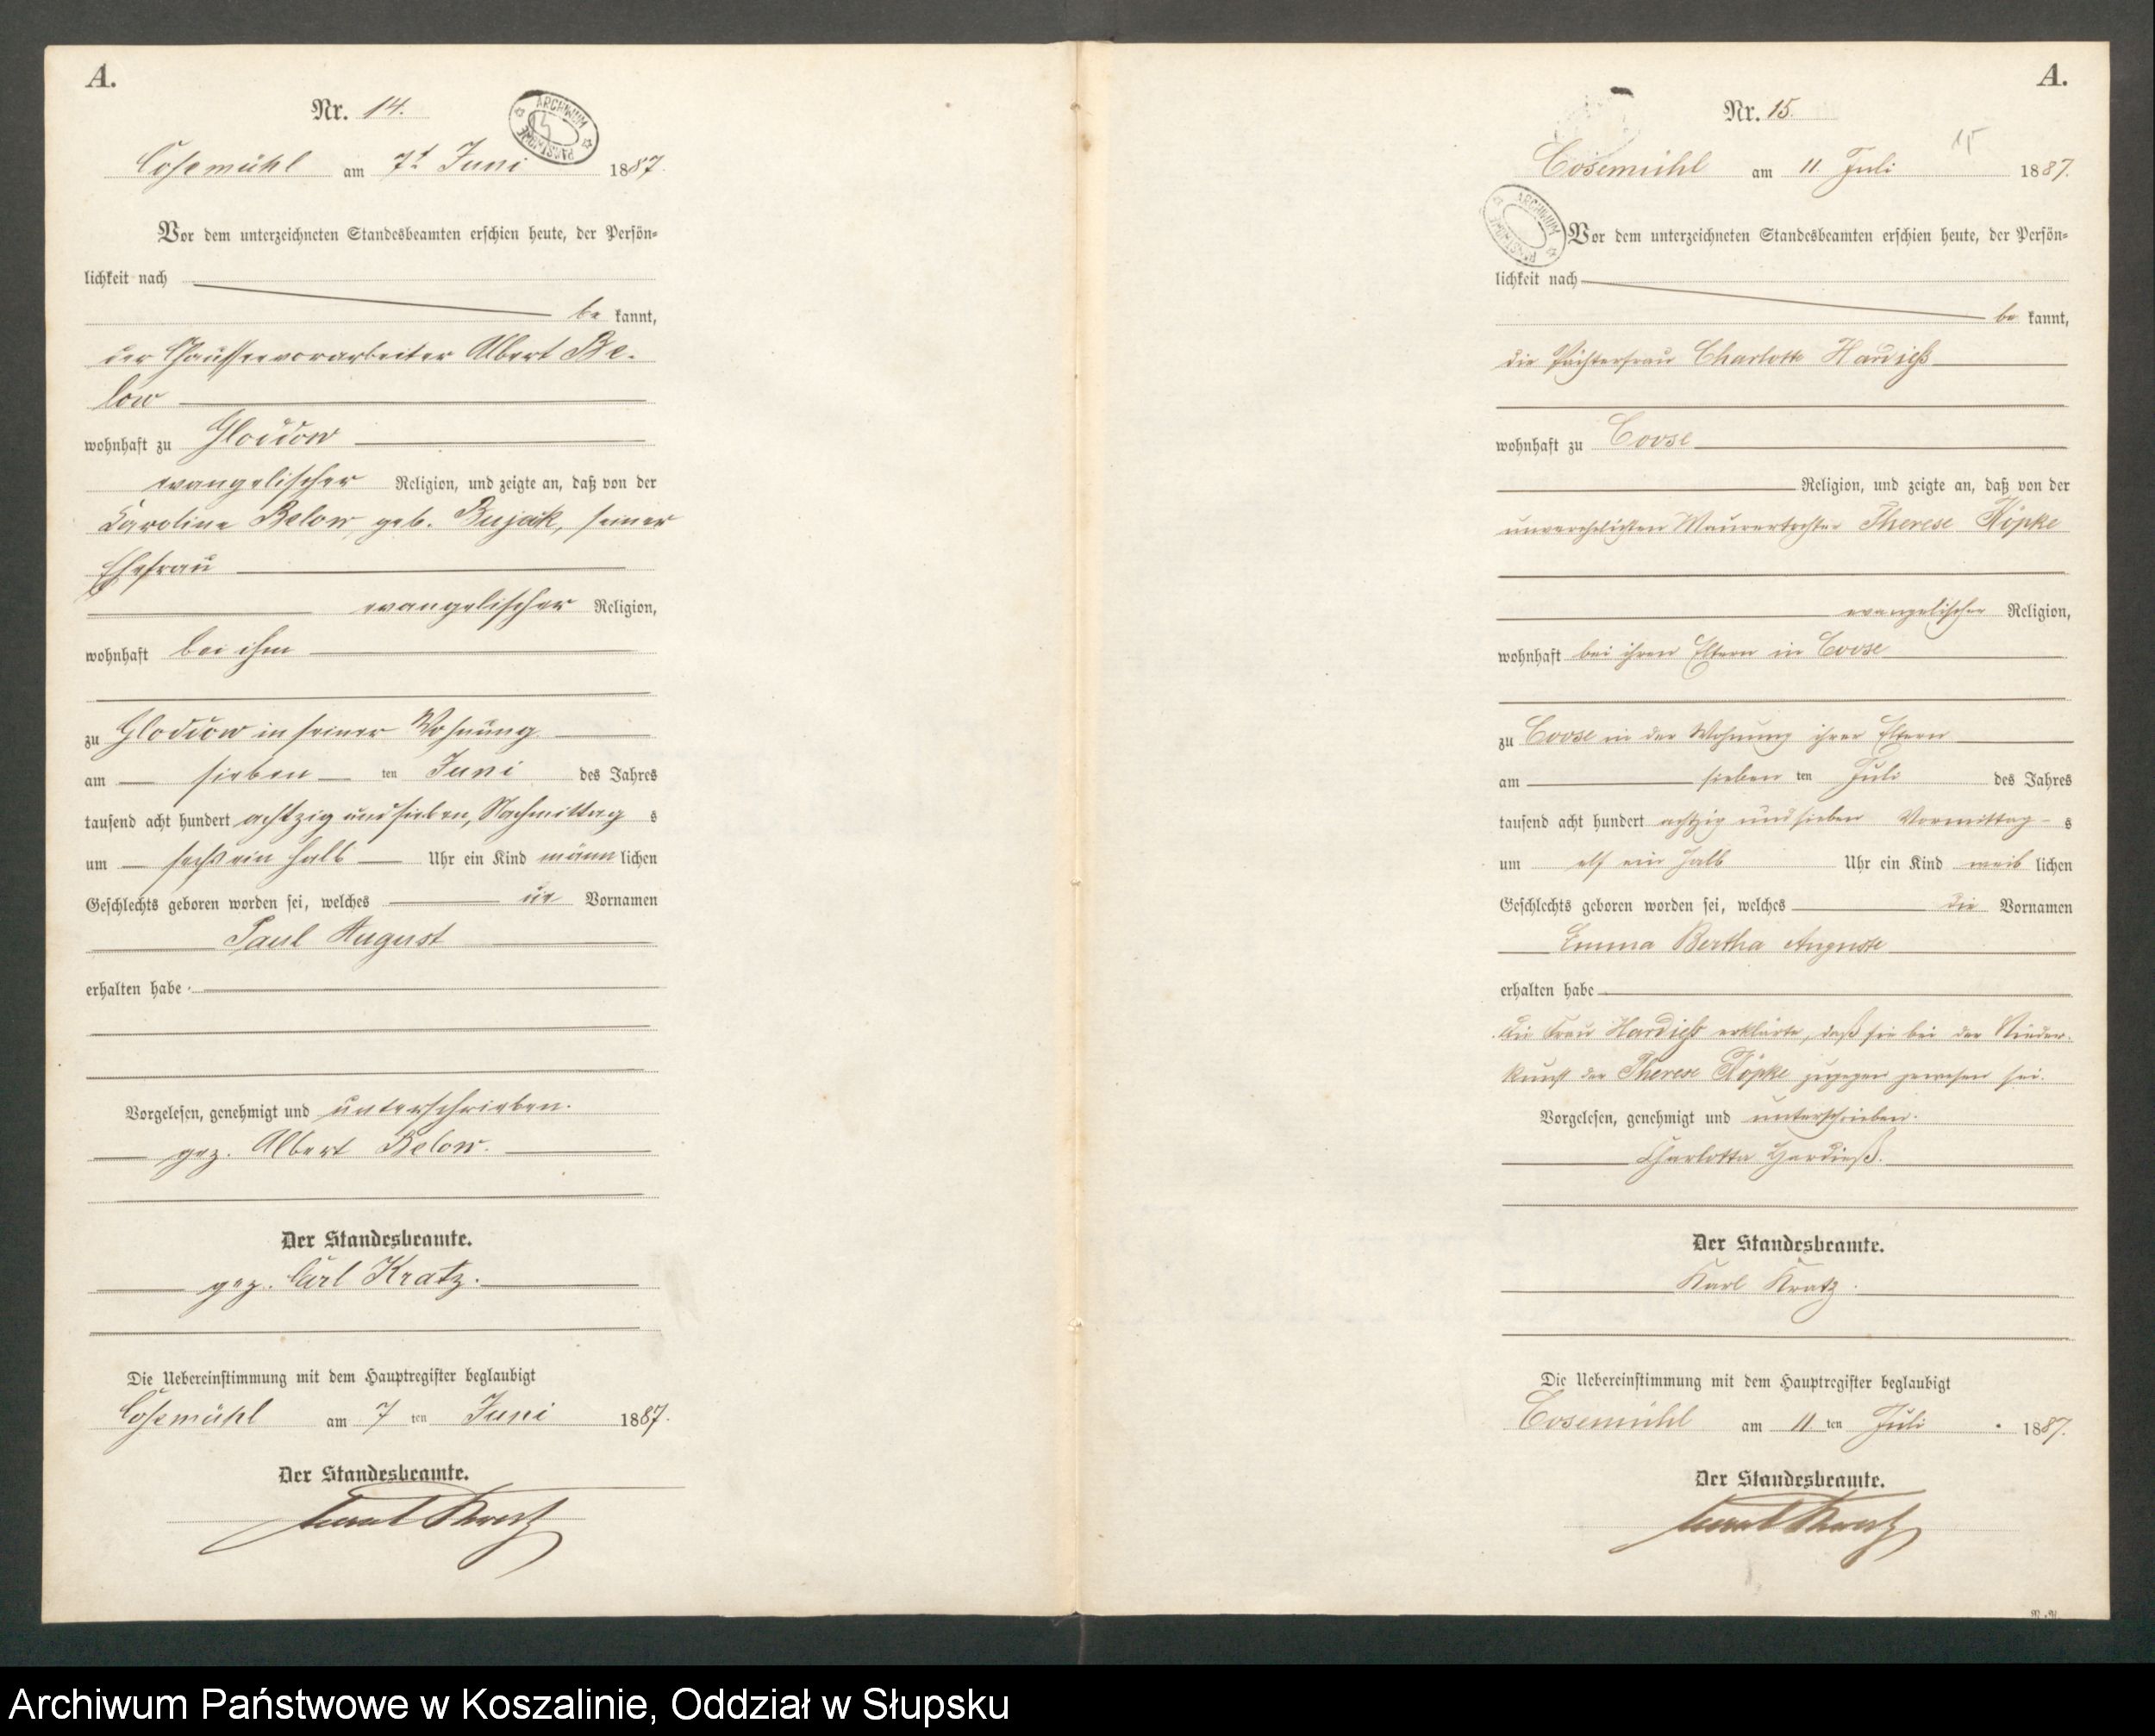 A.
Nr. 14.
ARCHIWUM
PAŃSTWOWE
Cosemühl am 7t Juni 1887.
Vor dem unterzeichneten Standesbeamten erschien heute, der Persön=
lichkeit nach
be kannt,
der Chausseevorarbeiter Albert Be-
low
wohnhaft zu Gloddow
evangelischer Religion, und zeigte an, daß von der
Karoline Below geb. Bujack, seiner
Ehefrau
evangelischer Religion,
wohnhaft bei ihm
zu Gloddow in seiner Wohnung
am sieben ten Juni des Jahres
tausend acht hundert achtzig und sieben, Nachmittag s
um sechs ein halb Uhr ein Kind männ lichen
Geschlechts geboren worden sei, welches die Vornamen
Paul August
erhalten habe.
Vorgelesen, genehmigt und unterschrieben.
gez. Albert Below.
Der Standesbeamte.
gez. Carl Kratz.
Die Uebereinstimmung mit dem Hauptregister beglaubigt
Cosemühl am 7 ten Juni 1887.
Der Standesbeamte.
Kratz
A.
Nr. 15.
15
Cosemühl am 11. Juli 1887.
ARCHIWUM
PAŃSTWOWE
Vor dem unterzeichneten Standesbeamten erschien heute, der Persön=
lichkeit nach
be kannt,
die Pächterfrau Charlotte Hardieß
wohnhaft zu Coose
Religion, und zeigte an, daß von der
unverehelichten Maurertochter Therese Köpke
evangelischer Religion,
wohnhaft bei ihren Eltern in Coose
zu Coose in der Wohnung ihrer Eltern
am sieben ten Juli des Jahres
tausend acht hundert achtzig und sieben Vormittag s
um elf ein halb Uhr ein Kind weib lichen
Geschlechts geboren worden sei, welches die Vornamen
Emma Bertha Auguste
erhalten habe
Die Frau Hardieß erklärte, daß sie bei der Nieder-
kunft der Therese Köpke zugegen gewesen sei.
Vorgelesen, genehmigt und unterschrieben.
Charlotte Hardieß.
Der Standesbeamte.
Karl Kratz.
Die Uebereinstimmung mit dem Hauptregister beglaubigt
Cosemühl am 11. ten Juli 1887.
Der Standesbeamte.
Kratz
Archiwum Państwowe w Koszalinie, Oddział w Słupsku